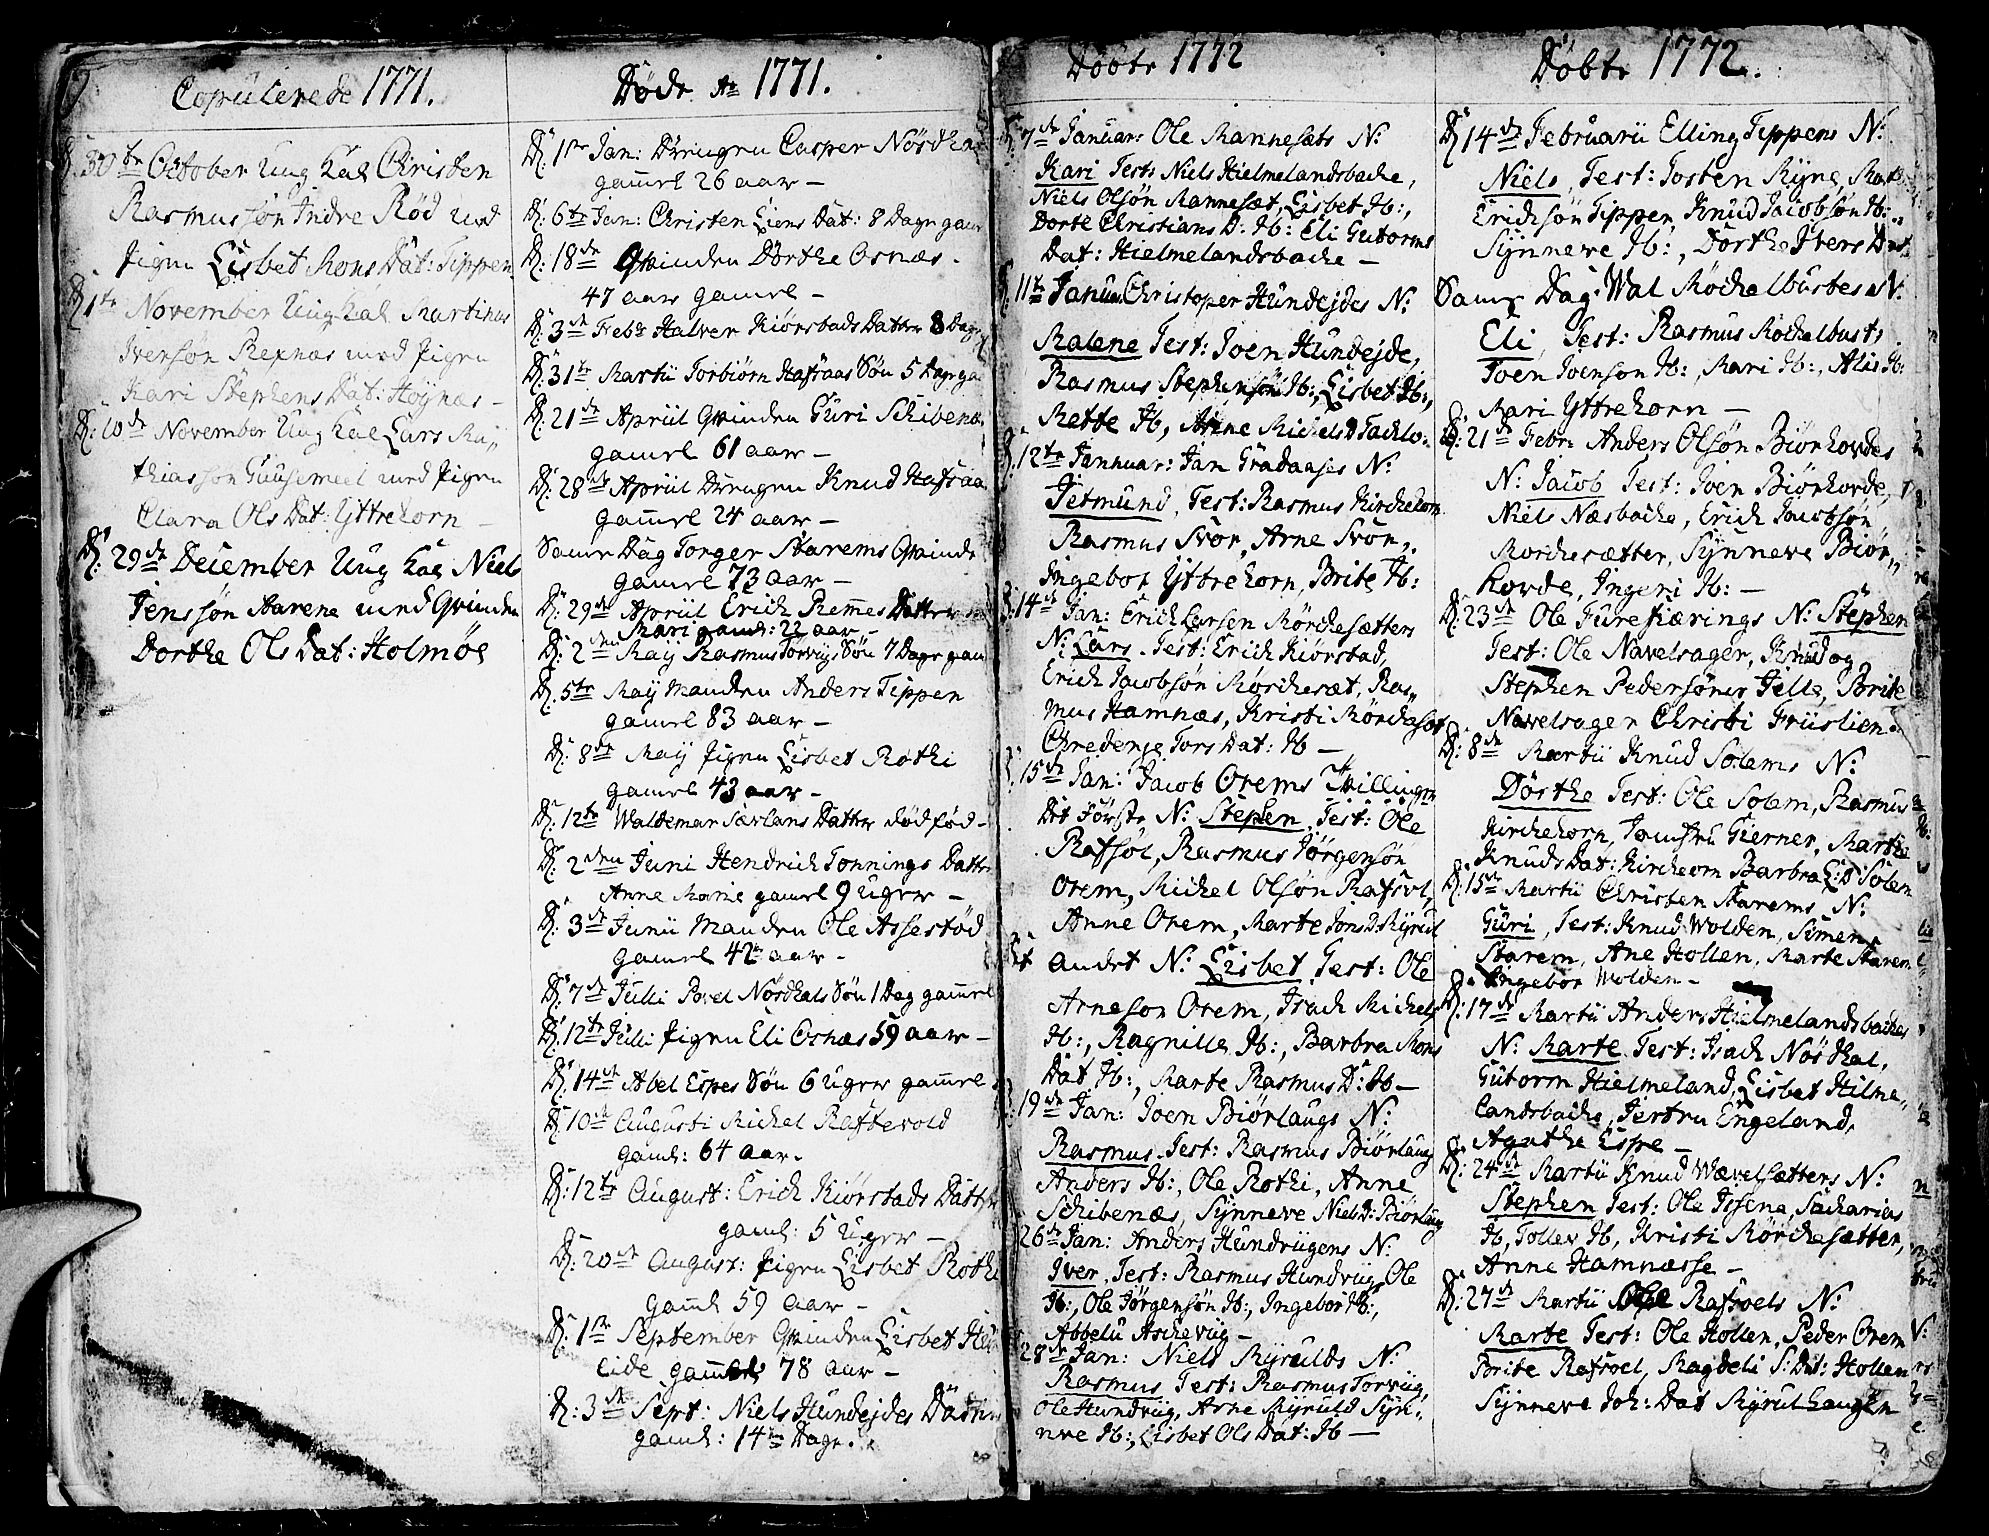 Copulerede 1771.
D. 30te October Ung Kal Christen
Rasmussøn Indre Rød med
Pigen Lisbet Mons Dat: Tippen
D. 1te November Ung Kal Martinus
Ivensøn Rexnæs med Pigen
Kari Stephens Dat: Høynæs –
D: 10de November Ung Kal Lars Ma„
thiassøn Guusemeel med Pigen
Clara Ols Dat: Yttrehorn –
D. 29de December Ung Kal Niels
Jenssøn Aarene med Qvinden
Dorthe Ols Dat: Holmøe
Døde Ao 1771.
D. 1ste Jan: Drengen Casper Nøsdhal
gamel 26 aar –
D. 6te Jan: Christen Liens Dat: 8 Dage gam
D: 18de Qvinden Dørthe Osnæs –
47 aar gamel –
D: 3de Febr Halver Kiørstads Datter 8 Dage
D: 31te Martii Torbiørn Hafsaas Søn 5 Dage ga
D: 21de Apriil Qvinden Guri Schibenæs
gamel 61 aar –
D: 28de Apriil Drengen Knud Hafsaas
gamel 24 aar –
Same Dag Torger Starems Qvinde
gamel 73 aar –
D: 29de Apriil Erich Remmes Datter
Mari gaml: 22 aar –
D: 2den Maij Rasmus Torvigs Søn 7 Dage gam
D. 5te Maij Manden Anders Tippen
gamel 83 aar –
D: 8de Maij Pigen Lisbet Rothi
gamel 43 aar –
D: 12te Waldemar Sørlans Datter dødfød –
D: 2den Juni Hendrich Tonnings Datter
Anne Marie gamel 9 Uger –
D: 3de Junii Manden Ole Assestød
gamel 42 aar –
D: 7de Julii Povel Nøsdhals Søn 1 Dag gamel
D: 12te Julii Pigen Eli Osnæs 59 aar –
D: 14de Abel Espes Søn 6 Uger gamel
D: 10de Augusti Michel Raftevold
gaml: 64 aar.
D: 12te August: Erich Kiørstads Datter
gaml: 5 Uger –
D: 20de August: Pigen Lisbet Rothi
gaml 59 aar –
D: 1ste September Qvinden Lisbet Hun
eide gammel 78 aar –
D: 3de Sept: Niels Hundejdes Datter
gaml: 14ten Dage.
Døbte 1772
D: 7de Januar: Ole Mannesæts N:
Kari Test: Niels Hielmelandsbache,
Niels Olsøn Mannesæt, Lisbet Ib:,
Dorte Christians D: Ib: Eli Gutorms
Dat: Hielmelandsbache –
11te Januar Christoper Hundejdes N:
Malene Test: Joen Hundejde,
Rasmus Stephensøn Ib:, Lisbet Ib:,
Mette Ib, Anne Michels D Tachlo.
12te Januar: Jan Gradaases N:
Jetmund, Test: Rasmus Kirchehorn
Rasmus Svor, Arne Svor,
Ingebor Yttrehorn, Brite Ib:
14de Jan: Erich Larsen Mørchesætters
N: Lars Test: Erich Kiørstad,
Erich Jacobsøn Mørchesæt, Ras„
mus Hamnæs, Kristi Mørchesæt
Chredenze Tors Dat: Ib –
15de Jan: Jacob Orems Tvillinger
Det Første N: Stephen, Test: Ole
Rafsøl, Rasmus Jørgensøn
Orem, Michel Olsøn Rafsvl,
Anne Orem, Marte Jons D: Myrul
Det andet N: Lisbet, Test: Ole
Arneson Orem, Isach Michels
Ib:, Ragnille Ib:, Barbra Mons
Dat Ib:, Marte Rasmus D: Ib –
19de Jan: Joen Biørlaugs N:
Rasmus Test: Rasmus Biørlaug
Anders Ib:, Ole Rothi, Anne
Schibenæs, Synneve Niels D: Biørlaug
26de Jan: Anders Hundviigens N:
Iver, Test: Rasmus Hundviig, Ole
Ib:, Ole Jørgensøn Ib:, Ingebor Ib:,
Abbelu Aschevig –
28de Jan: Niels Myrulds N:
Rasmus Test: Rasmus Torviig,
Ole Hundviig, Arne Myruld Syn„
neve Ib:, Lisbet Ols Dat: Ib –
Døbte 1772.
D: 14de Februarii Elling Tippens N:
Niels, Test: Josten Ryne, Mats
Erichsøn Tippen, Knud Jacobsøn Ib:
Synneve Ib:, Dorthe Ivers Dat
Same Dag Wal Mochelbusbes N:
Eli, Test: Rasmus Mochelbust,
Joen Joenson Ib:, Mari Ib:, Alis Ib:
Mari Yttrehorn –
D: 21de Febr: Anders Olsøn Biørhovdes
N: Jacob Test: Joen Biørhovde,
Niels Næsbache, Erich Jacobsøn
Morchesætter, Synneve Biør„
hovde, Ingeri Ib: –
D: 23de Ole Furefiærings N: Stephen
Test: Ole Navelsager, Knud og
Stephen Pedersøner Jelle, Brite
Navelsager Christi Friislien.
D: 8de Martii Knud Solems N:
Dørthe Test: Ole Solem, Rasmus
Kirchehorn, Jomfru Gierner, Marthe
Knuds Dat: Kirchorn Barbra E: D Solem
D: 15de Martii Christen Starems N:
Guri, Test: Knud Wolden, Simen
Starem, Ane Hollen, Marte Starem
Ingebor Wolden –
D: 17de Martii Anders Hielmelandsbaches
N: Marte Test: Isach Nøsdhal,
Gutorm Hielmeland, Lisbet Hilme„
landsbache, Jertru Engeland,
Agathe Espe –
D: 24de Martii Knud Wævelsætters N:
Stephen Test: Ole Issene, Sacharias
Ib, Tollev Ib, Kristi Mørchesætter,
Anne Hamnæsse –
D: 27de Martii Ole Rafsvels N:
Marte Test: Ole Hollen, Peder Orem
Brite Rafsvel, Magdeli S: Dat: Hollen
Synneve Joh: Dat Myrulhaugen